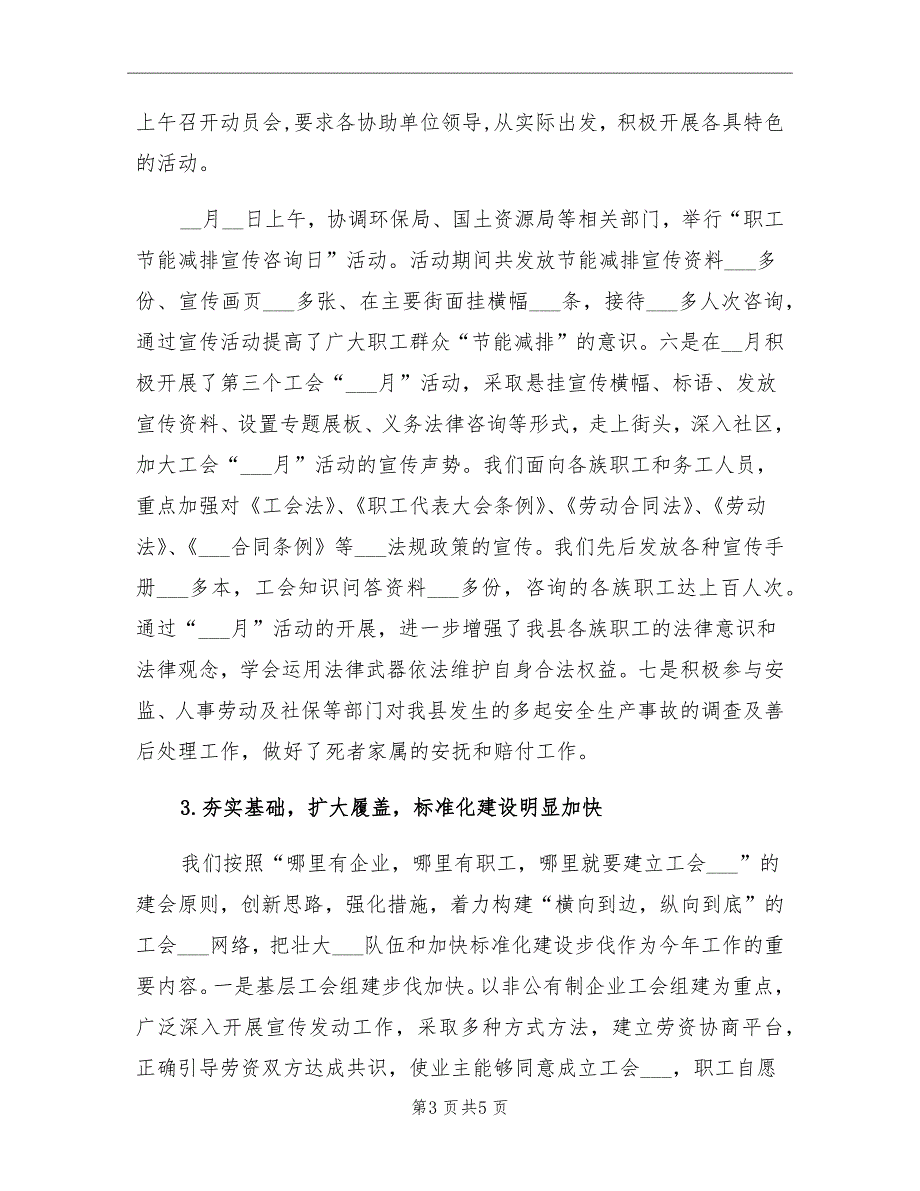 上午召开动员会,要求各协助单位领导,从实际出发，积极开展各具特色
的活动。
__月__日上午，协调环保局、国土资源局等相关部门，举行“职工
节能减排宣传咨询日”活动。活动期间共发放节能减排宣传资料___多
份、宣传画页___多张、在主要街面挂横幅___条，接待___多人次咨询，
通过宣传活动提高了广大职工群众“节能减排”的意识。六是在__月积
极开展了第三个工会“___月”活动，采取悬挂宣传横幅、标语、发放
宣传资料、设置专题展板、义务法律咨询等形式，走上街头，深入社区，
加大工会“___月”活动的宣传声势。我们面向各族职工和务工人员，
重点加强对《工会法》、《职工代表大会条例》、《劳动合同法》、《劳动
法》、《___合同条例》等___法规政策的宣传。我们先后发放各种宣传手
册___多本，工会知识问答资料___多份，咨询的各族职工达上百人次。
通过“___月”活动的开展，进一步增强了我县各族职工的法律意识和
法律观念，学会运用法律武器依法维护自身合法权益。七是积极参与安
监、人事劳动及社保等部门对我县发生的多起安全生产事故的调查及善
后处理工作，做好了死者家属的安抚和赔付工作。
3.夯实基础，扩大履盖，标准化建设明显加快
我们按照“哪里有企业，哪里有职工，哪里就要建立工会___”的
建会原则，创新思路，强化措施，着力构建“横向到边，纵向到底”的
工会___网络，把壮大___队伍和加快标准化建设步伐作为今年工作的重
要内容。一是基层工会组建步伐加快。以非公有制企业工会组建为重点，
广泛深入开展宣传发动工作，采取多种方式方法，建立劳资协商平台，
正确引导劳资双方达成共识，使业主能够同意成立工会___，职工自愿
第3 页共5 页